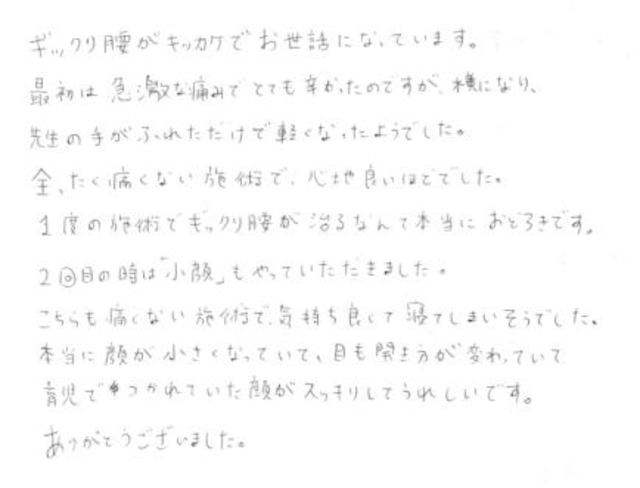 ギックリ腰がキッカケでお世話になっています。
最初は急激な痛みでとても辛かったのですが、横になり、
先生の手がふれただけで軽くなったようでした。
全ったく痛くない施術で、心地良いほどでした。
1度の施術でギックリ腰が治るなんて本当におどろきです。
2回目の時は「小顔」もやっていただきました。
こちらも痛くない施術で、気持ち良くて寝てしまいそうでした。
本当に顔が小さくなっていて、目も開き方が変わっていて
育児でつかれていた顔がスッキリしてうれしいです。
ありがとうございました。